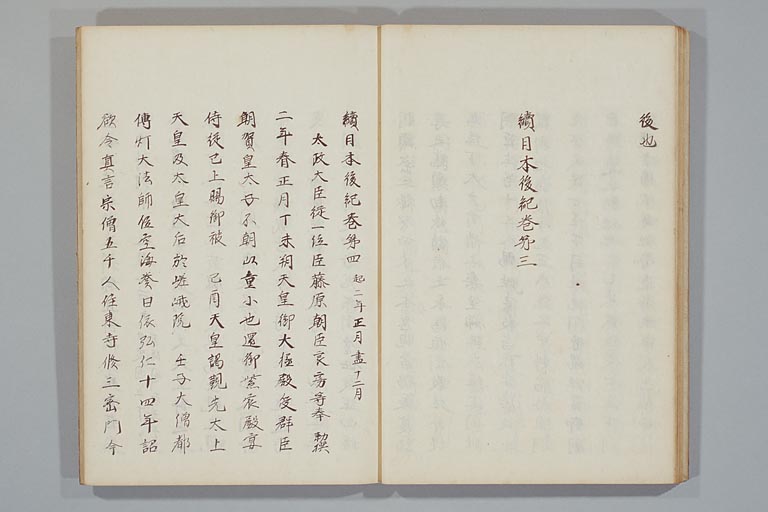 後也
續日本後紀巻第三
續日本後紀巻第四 起二年正月盡十二月
太政大臣從一位臣藤原朝臣良房等奉 勅撰
二年春正月丁未朔天皇御大極殿受群臣
朝賀皇太子不朝以童小也還御紫宸殿宴
侍從已上賜御被 己酉天皇謁覲先太上
天皇及太皇大后於嵯峨院 壬子大僧都
傳灯大法師位空海奏曰依弘仁十四年詔
欲令真言宗僧五十人住東寺修三密門今